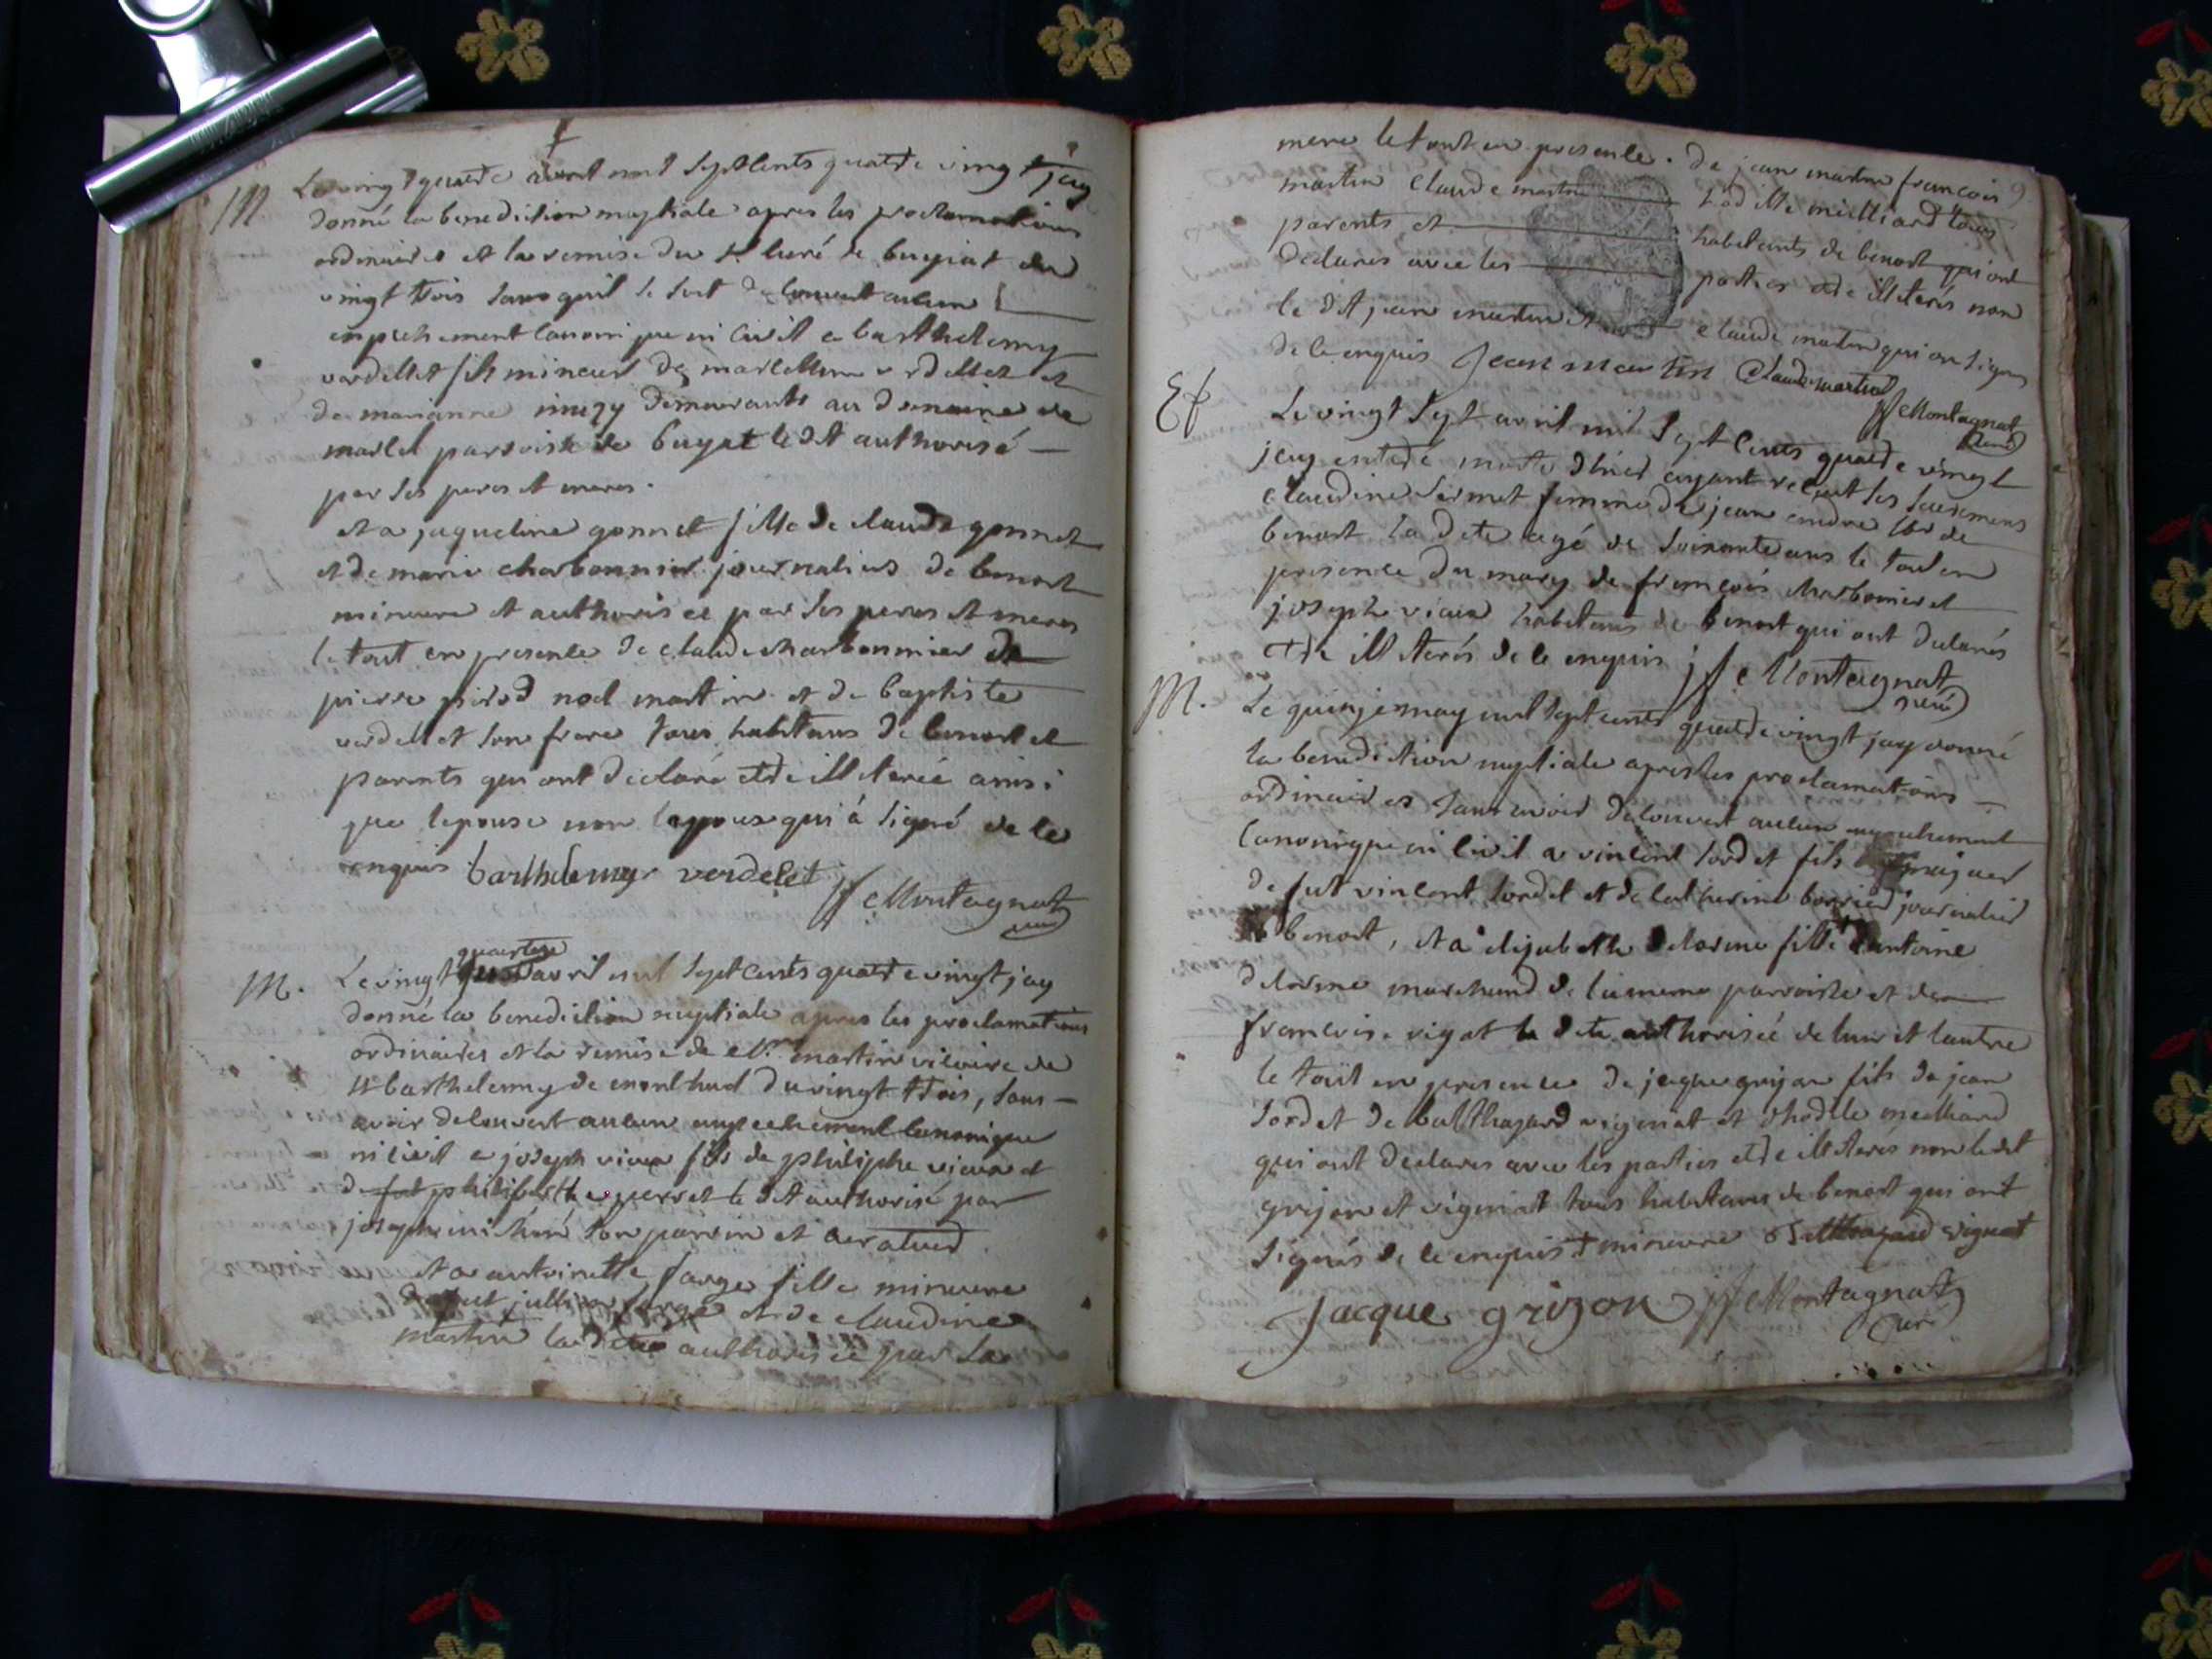 M Le vingt quatre avril mil sept cents quatre vingt jay
donné la benediction nuptiale apres les proclamations
ordinaires et la remise du sr curé de buyiat du
vingt trois sans quil se soit decouvert aucun
enpechement canonique ni civil a barthelemy
verdellet fils mineur de marcellin verdellet et
de marianne demeurants au domaine de
marcel parroisse de buyat le dit authorisé
par ses peres et meres.
et a jaqueline gonnet fille de claude gonnet
et de marie charbonnier journaliers de benost
mineure et authorisée par ses peres et meres
le tout en presence de claude charbonnier de
pierre pirod noel martin et de baptiste
verdellet son frere tous habitans de benost et
parents qui ont déclaré etre illiterée ainsi
que lepouse non lepoux qui à signé de ce
enquis barthelemy verdelet
jf Montagnat
curé
quatre
M. Le vingt avril mil sept cents quatre vingt jay
donné la benediction nuptiale apres les proclamations
ordinaires et la remise de Mr martin vicaire de
st barthelemy de monlhud du vingt trois, sans
avoir decouvert aucun empechement canonique
ni civil a joseph vieux fils de philiphe vieux et
de fut philiberthe perret le dit authorisé par
joseph son parrin et curateur
et a antoinette farge fille mineure
de fut jullien farge et de claudine
martin la dite authorisée par sa
mere le tout en presence de jean martin françois 9
martin claude martin thodille milliard tous
parents et habitants de benost qui ont
declarés avec les parties etre illiterés non
le dit jean martin et claude martin qui on signés
de ce enquis Jean martin Claude martin
jf Montagnat
curé
Ef Le vingt sept avril mil sept cents quatre vingt
jay enteré morte dhier ayant recut ses sacremens
claudine sermet femme de jean andre de
benost la dite agé de soixante ans le tout en
presence du mary de françois charbonier et
joseph vieux habitans de benost qui ont declarés
etre illiterés de ce enquis jf Montagnat
curé
M. Le quinze may mil sept cents quatre vingt jay donné
la benediction nuptiale apres les proclamations
ordinaires sans avoir decouvert aucun enpechement
canonique ni civil a vincent sordet fils majeur
de fut vincent sordet et de catherine borrier journalier
de benost, et a elizabeth delorme fille dantoine
delorme marchand de la meme parroisse et de
francoise vigat la dite authorisée de lun et lautre
le tout en presence de jaque grizon fils de jean
sordet de balthazard vigniat et thodille milliard
qui ont declarés avec les parties etre illiteres non ledit
grizon et vigniat tous habitans de benost qui ont
signés de ce enquis + mineure Balthazard vignat
Jacque grizon jf Montagnat
Curé